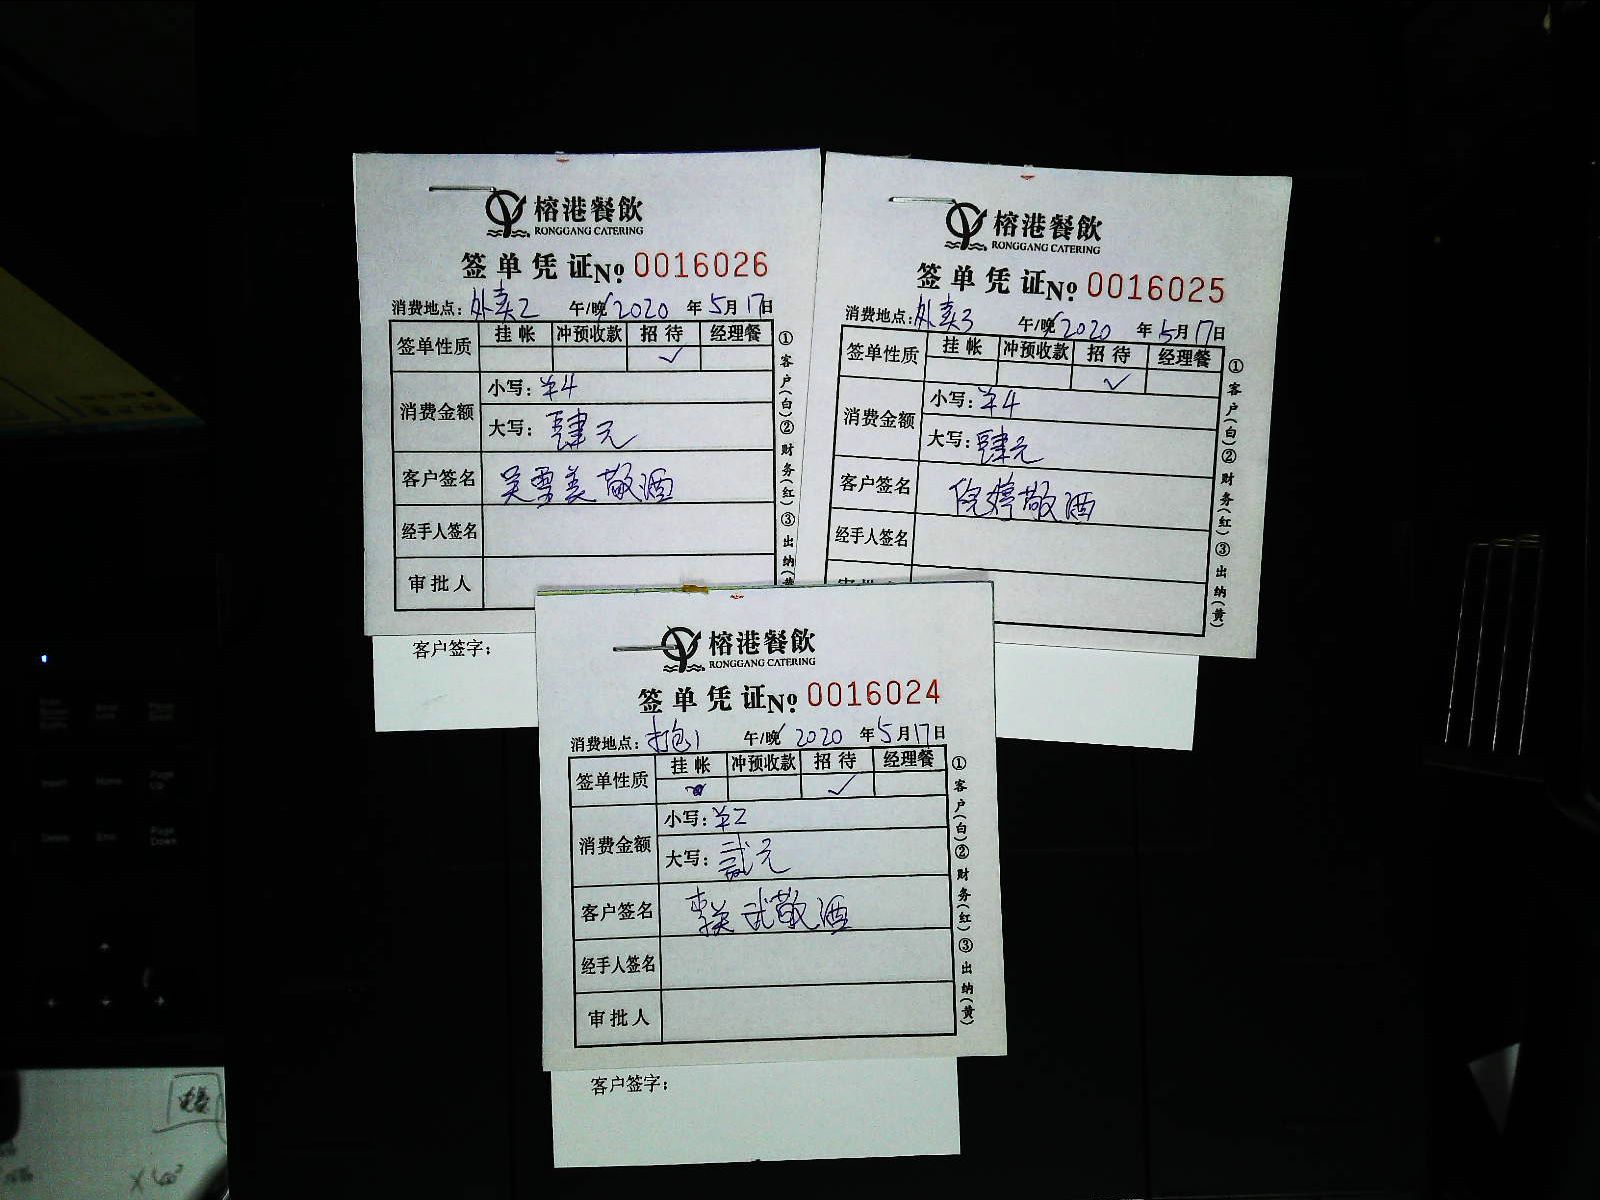 榕港餐飲
RONGGANG CATERING
签单凭证№ 0016026
消费地点：外卖2 午/晚 2020 年 5 月 17 日
签单性质 挂帐 冲预收款 招待 经理餐
✓
消费金额 小写：¥4
大写：肆元
客户签名 吴雪美敬酒
经手人签名
审批人
①客户(白)②财务(红)③出纳(黄
客户签字：
榕港餐飲
RONGGANG CATERING
签单凭证№ 0016025
消费地点：外卖3 午/晚 2020 年 5 月 17 日
签单性质 挂帐 冲预收款 招待 经理餐
✓
消费金额 小写：¥4
大写：肆元
客户签名 倪婷敬酒
经手人签名
审批人
①客户(白)②财务(红)③出纳(黄)
榕港餐飲
RONGGANG CATERING
签单凭证№ 0016024
消费地点：打包1 午/晚 2020 年 5 月 17 日
签单性质 挂帐 冲预收款 招待 经理餐
✓
消费金额 小写：¥2
大写：贰元
客户签名 武敬酒
经手人签名
审批人
①客户(白)②财务(红)③出纳(黄)
客户签字：
Insert Home Page Up
Delete End Page Down